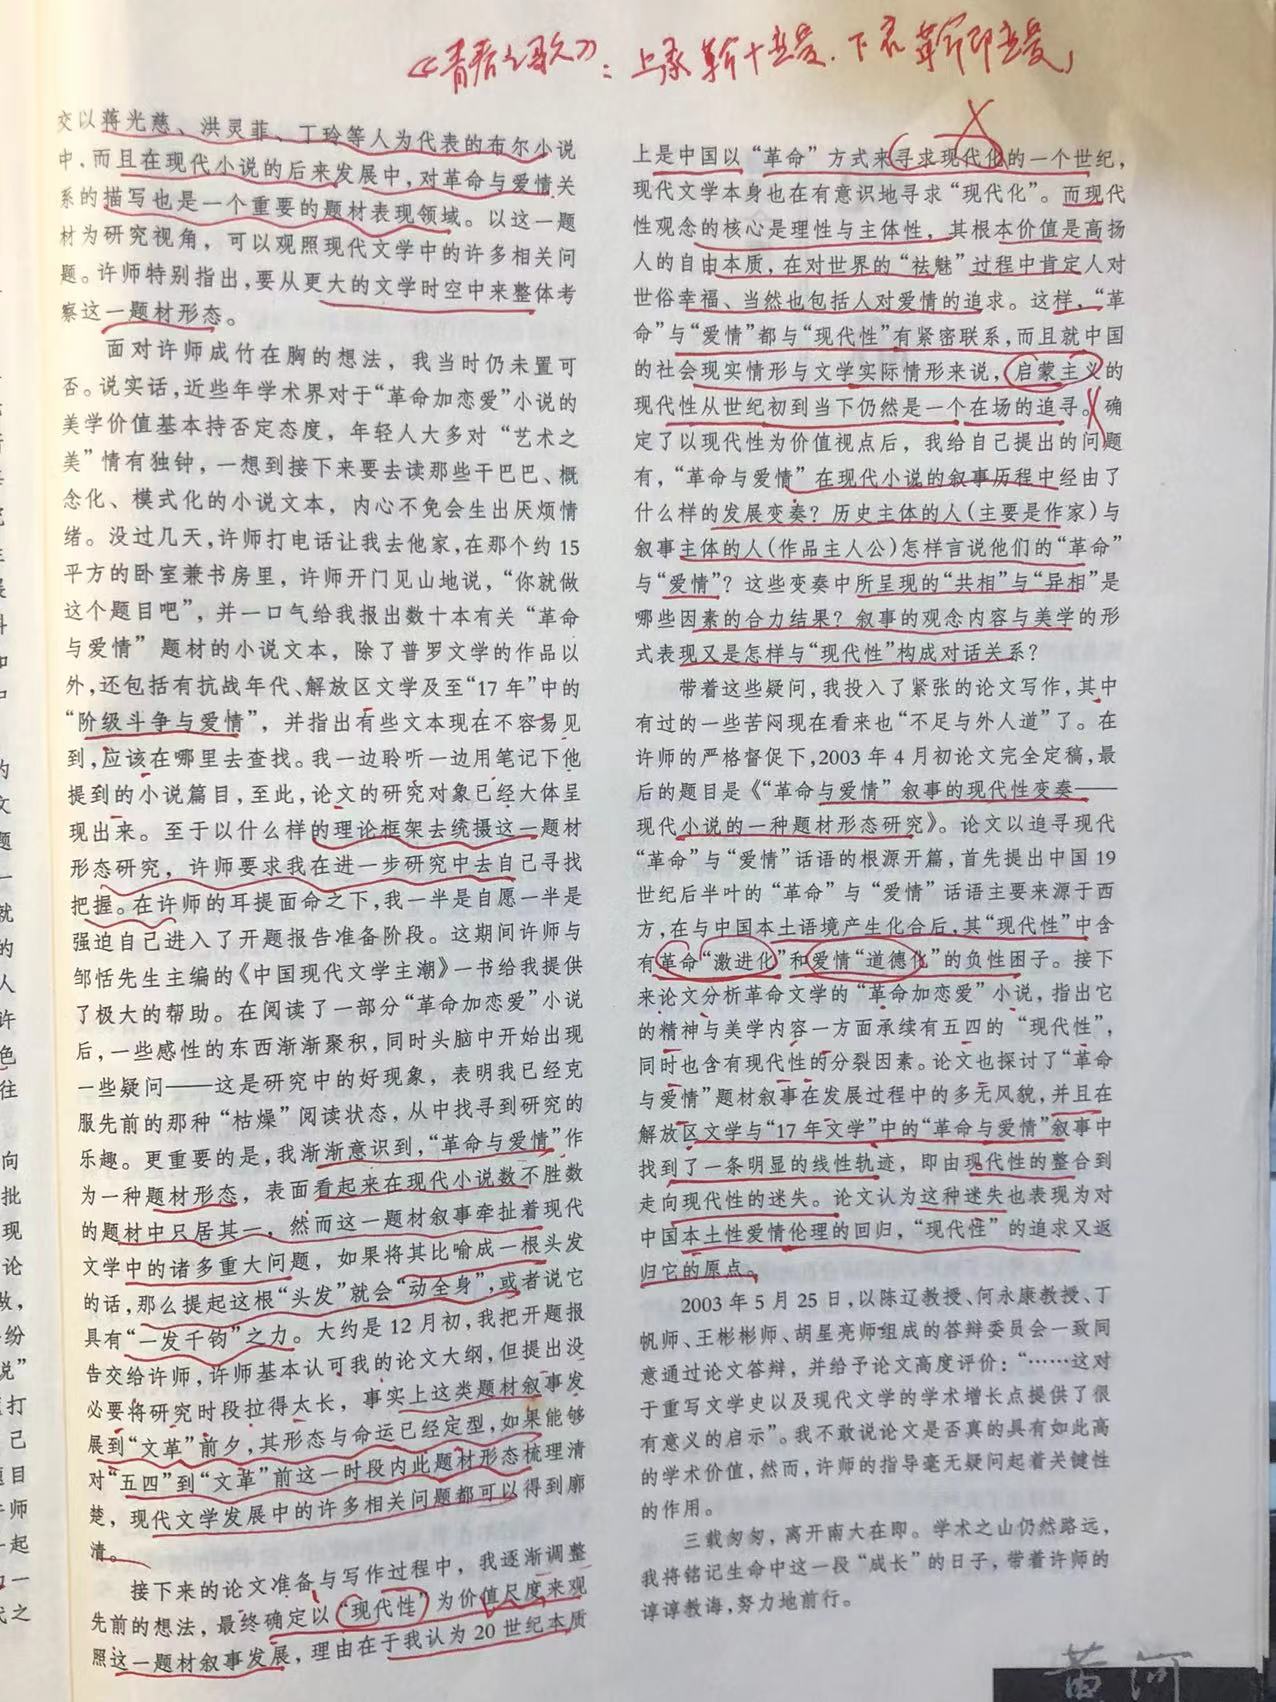 《青春之歌》：上承革命+恋爱，下启革命即恋爱，
交以蒋光慈、洪灵菲、丁玲等人为代表的布尔小说
中，而且在现代小说的后来发展中，对革命与爱情关
系的描写也是一个重要的题材表现领域。以这一题
材为研究视角，可以观照现代文学中的许多相关问
题。许师特别指出，要从更大的文学时空中来整体考
察这一题材形态。
面对许师成竹在胸的想法，我当时仍未置可
否。说实话，近些年学术界对于“革命加恋爱”小说的
美学价值基本持否定态度，年轻人大多对“艺术之
美”情有独钟，一想到接下来要去读那些干巴巴、概
念化、模式化的小说文本，内心不免会生出厌烦情
绪。没过几天，许师打电话让我去他家，在那个约15
平方的卧室兼书房里，许师开门见山地说，“你就做
这个题目吧”，并一口气给我报出数十本有关“革命
与爱情”题材的小说文本，除了普罗文学的作品以
外，还包括有抗战年代、解放区文学及至“17年”中的
“阶级斗争与爱情”，并指出有些文本现在不容易见
到，应该在哪里去查找。我一边聆听一边用笔记下他
提到的小说篇目，至此，论文的研究对象已经大体呈
现出来。至于以什么样的理论框架去统摄这一题材
形态研究，许师要求我在进一步研究中去自己寻找
把握。在许师的耳提面命之下，我一半是自愿一半是
强迫自己进入了开题报告准备阶段。这期间许师与
邹恬先生主编的《中国现代文学主潮》一书给我提供
了极大的帮助。在阅读了一部分“革命加恋爱”小说
后，一些感性的东西渐渐聚积，同时头脑中开始出现
一些疑问——这是研究中的好现象，表明我已经克
服先前的那种“枯燥”阅读状态，从中找寻到研究的
乐趣。更重要的是，我渐渐意识到，“革命与爱情”作
为一种题材形态，表面看起来在现代小说数不胜数
的题材中只居其一，然而这一题材叙事牵扯着现代
文学中的诸多重大问题，如果将其比喻成一根头发
的话，那么提起这根“头发”就会“动全身”，或者说它
具有“一发千钧”之力。大约是12月初，我把开题报
告交给许师，许师基本认可我的论文大纲，但提出没
必要将研究时段拉得太长，事实上这类题材叙事发
展到“文革”前夕，其形态与命运已经定型，如果能够
对“五四”到“文革”前这一时段内此题材形态梳理清
楚，现代文学发展中的许多相关问题都可以得到廓
清。
接下来的论文准备与写作过程中，我逐渐调整
先前的想法，最终确定以“现代性”为价值尺度来观
照这一题材叙事发展，理由在于我认为20世纪本质
上是中国以“革命”方式来寻求现代化的一个世纪，
现代文学本身也在有意识地寻求“现代化”。而现代
性观念的核心是理性与主体性，其根本价值是高扬
人的自由本质，在对世界的“祛魅”过程中肯定人对
世俗幸福、当然也包括人对爱情的追求。这样，“革
命”与“爱情”都与“现代性”有紧密联系，而且就中国
的社会现实情形与文学实际情形来说，启蒙主义的
现代性从世纪初到当下仍然是一个在场的追寻。确
定了以现代性为价值视点后，我给自己提出的问题
有，“革命与爱情”在现代小说的叙事历程中经由了
什么样的发展变奏？历史主体的人（主要是作家）与
叙事主体的人（作品主人公）怎样言说他们的“革命”
与“爱情”？这些变奏中所呈现的“共相”与“异相”是
哪些因素的合力结果？叙事的观念内容与美学的形
式表现又是怎样与“现代性”构成对话关系？
带着这些疑问，我投入了紧张的论文写作，其中
有过的一些苦闷现在看来也“不足与外人道”了。在
许师的严格督促下，2003年4月初论文完全定稿，最
后的题目是《“革命与爱情”叙事的现代性变奏——
现代小说的一种题材形态研究》。论文以追寻现代
“革命”与“爱情”话语的根源开篇，首先提出中国19
世纪后半叶的“革命”与“爱情”话语主要来源于西
方，在与中国本土语境产生化合后，其“现代性”中含
有革命“激进化”和爱情“道德化”的负性因子。接下
来论文分析革命文学的“革命加恋爱”小说，指出它
的精神与美学内容一方面承续有五四的“现代性”，
同时也含有现代性的分裂因素。论文也探讨了“革命
与爱情”题材叙事在发展过程中的多元风貌，并且在
解放区文学与“17年文学”中的“革命与爱情”叙事中
找到了一条明显的线性轨迹，即由现代性的整合到
走向现代性的迷失。论文认为这种迷失也表现为对
中国本土性爱情伦理的回归，“现代性”的追求又返
归它的原点。
2003年5月25日，以陈辽教授、何永康教授、丁
帆师、王彬彬师、胡星亮师组成的答辩委员会一致同
意通过论文答辩，并给予论文高度评价：“……这对
于重写文学史以及现代文学的学术增长点提供了很
有意义的启示”。我不敢说论文是否真的具有如此高
的学术价值，然而，许师的指导毫无疑问起着关键性
的作用。
三载匆匆，离开南大在即。学术之山仍然路远，
我将铭记生命中这一段“成长”的日子，带着许师的
谆谆教诲，努力地前行。
黄河